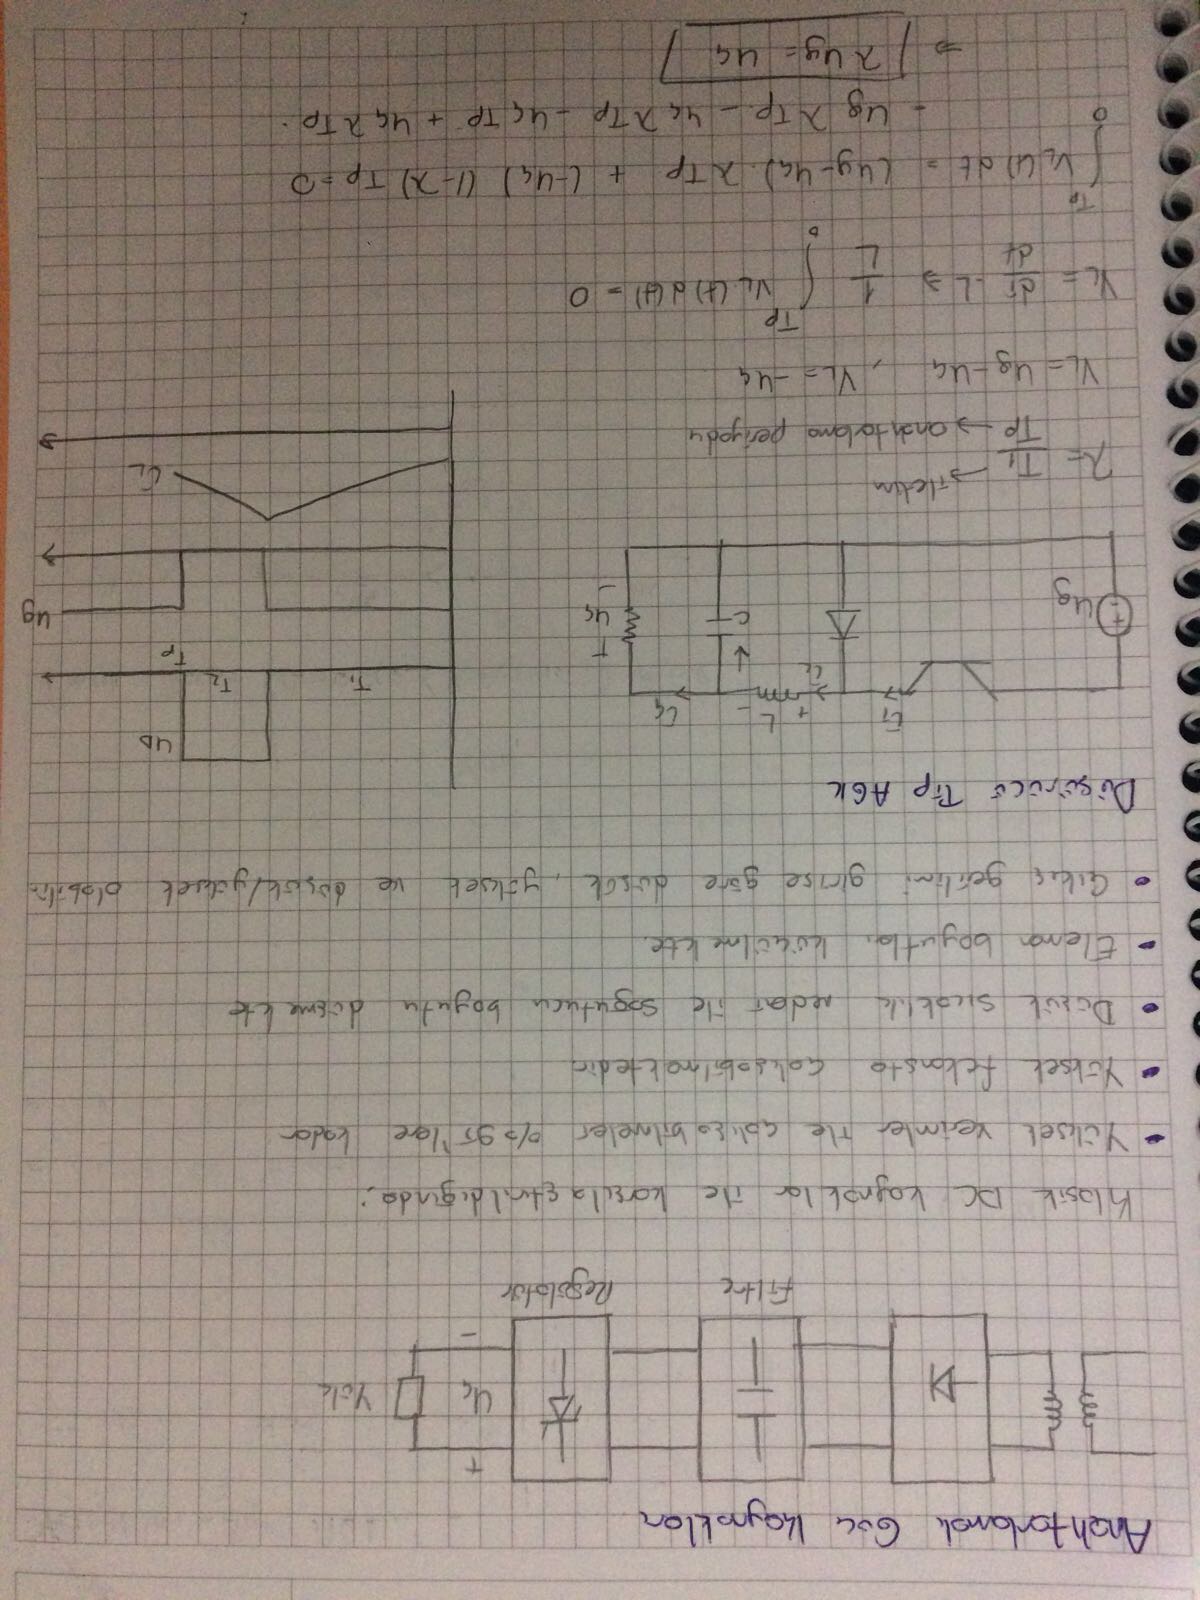 Anahtarlamalı Güç Kaynakları
+
Uç
Yük
-
Filtre
Regülatör
Klasik DC kaynaklar ile karşılaştırıldığında;
• Yüksek verimler ile çalışabilmeler %95'lere kadar
• Yüksek fekansta çalışabilmektedir
• Düşük sıcaklık nedeni ile soğutucu boyutu düşmekte
• Eleman boyutları küçülmekte.
• Çıkış gerilimi girişe göre düşük, yüksek ve düşük/yüksek olabilir
Düşürücü Tip AGK
UD
T1 T2
Tp
iT + L - iç
iL
+
Ug C Uç
-
Ug
iL
λ = T1 / Tp → iletim
→ anahtarlama periyodu
VL = Ug - Uç , VL = -Uç
VL = di/dt . L ⇒ 1/L ∫₀^Tp VL(t) d(t) = 0
∫₀^Tp VL(t) dt = (Ug-Uç). λ Tp + (-Uç) (1-λ) Tp = 0
= Ug λ Tp - Uç λ Tp - Uç Tp + Uç λ Tp.
⇒ λ Ug = Uç